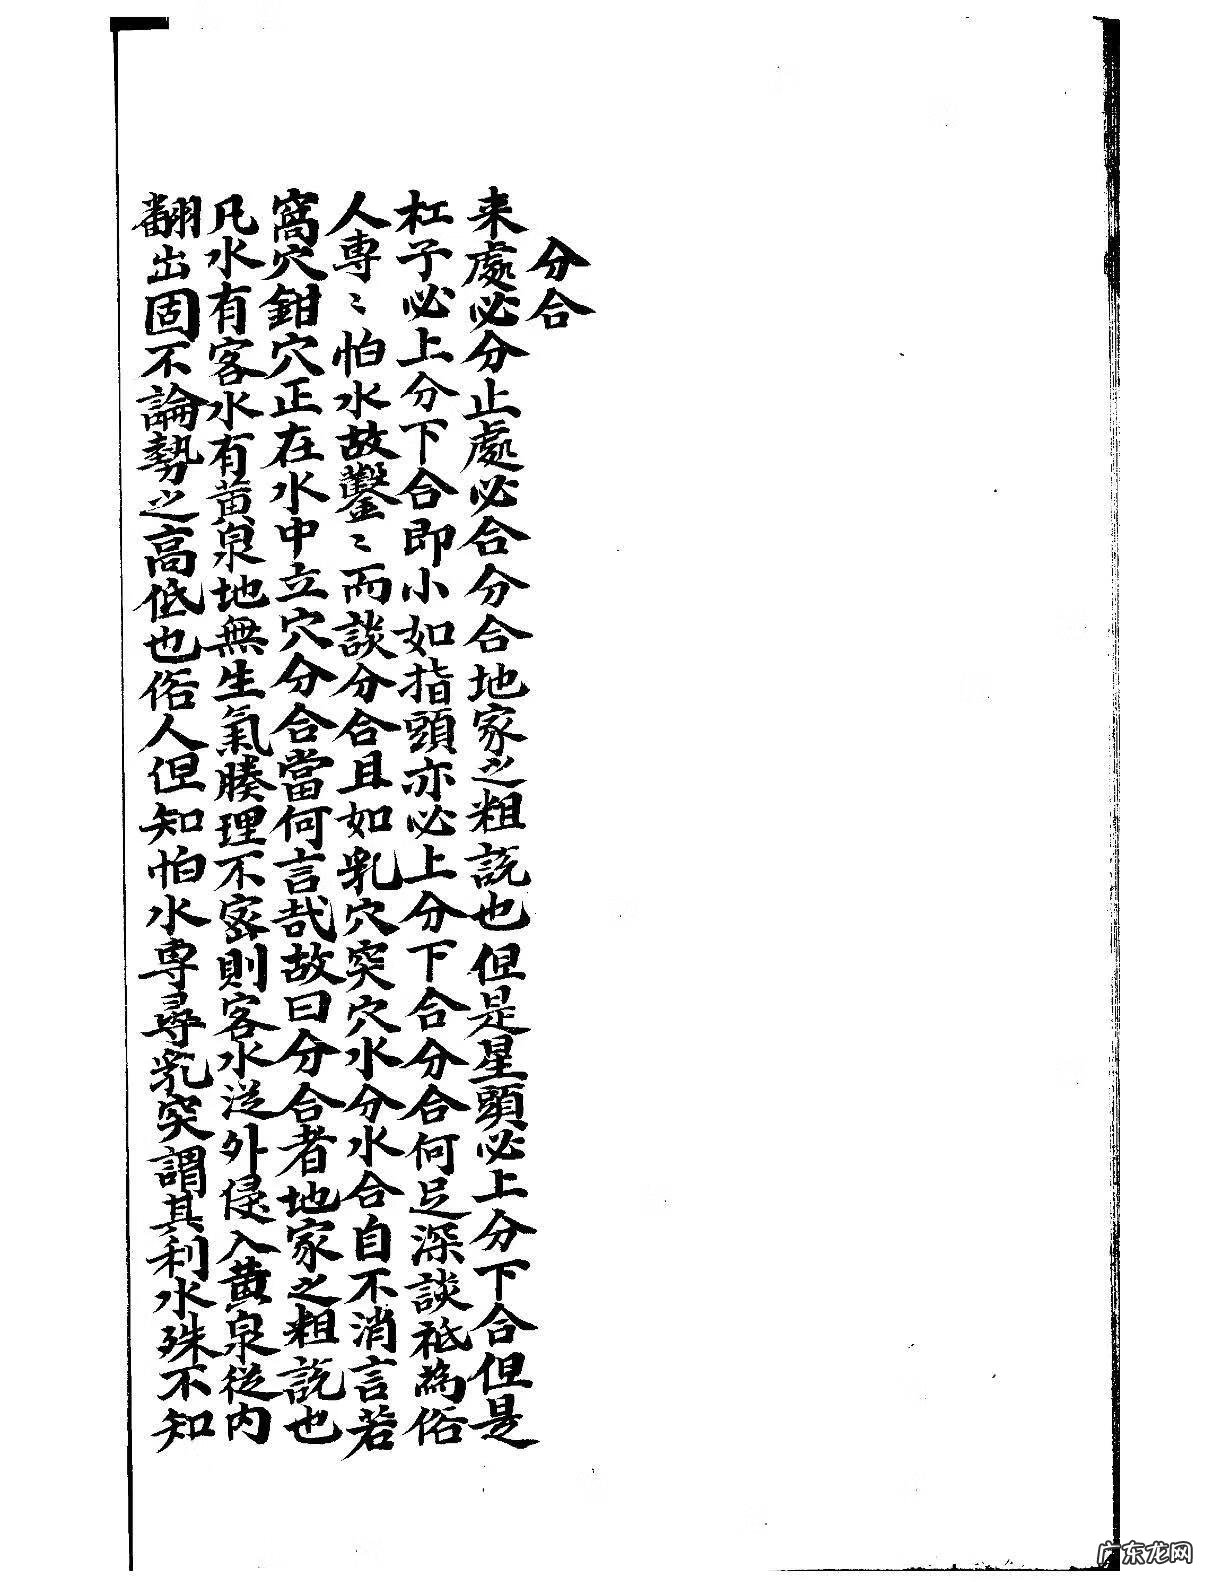 分合
来處必分止處必合分合地家之粗説也但是星頭必上分下合但是
杠子必上分下合即小如指頭亦必上分下合分合何足深談祗為俗
人専〻怕水故鑿〻而談分合且如乳穴突穴水分水合自不消言若
窩穴鉗穴正在水中立穴分合當何言哉故曰分合者地家之粗説也
凡水有客水有黄泉地無生氣腠理不密則客水従外侵入黄泉従内
翻出固不論勢之高低也俗人但知怕水専尋乳突謂其利水殊不知
广东龙网